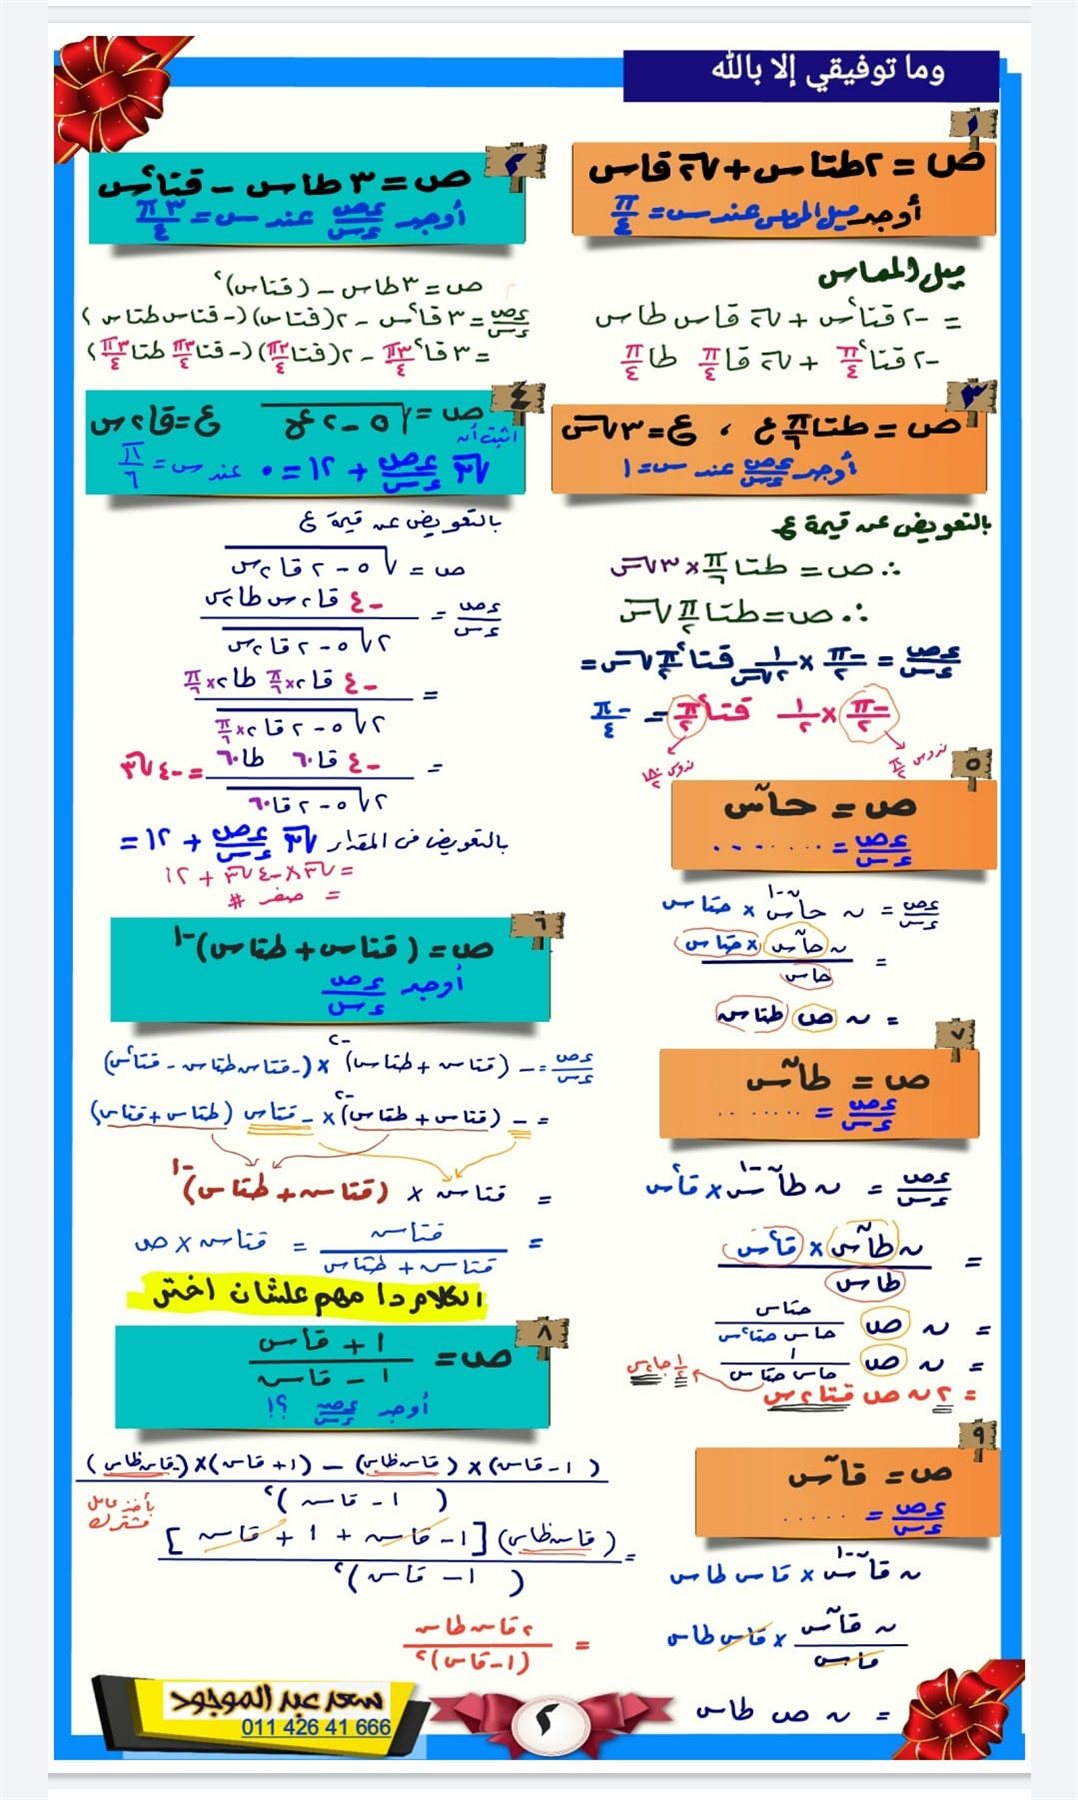 وما توفيقي إلا بالله
١
ص = ٢ طتاس + √٢ قاس
أوجد ميل المماس عند س = π/٤
ميل المماس
= -٢ قتا²س + √٢ قاس طاس
-٢ قتا² π/٤ + √٢ قا π/٤ طا π/٤
٢
ص = ٣ طاس - قتا²س
أوجد ءص/ءس عند س = ٣π/٤
ص = ٣ طاس - (قتاس)²
ءص/ءس = ٣ قا²س - ٢(قتاس)(- قتاس طتاس)
= ٣ قا² ٣π/٤ - ٢(قتا ٣π/٤)(- قتا ٣π/٤ طتا ٣π/٤)
٣
ص = طتا π/٦ ع ، ع = ٣√س
أوجد ءص/ءس عند س = ١
بالتعويض عن قيمة ع
∴ ص = طتا π/٦ × ٣√س
∴ ص = طتا π/٢ √س
ءص/ءس = -π/٢ × ١/٢√س قتا² π/٢ √س =
-π/٢ × ١/٢ قتا² π/٢ = -π/٤
٤
ص = √٥ - ٢ع ع = قا٢س
اثبت أن
√٣ ءص/ءس + ١٢ = ٠ عند س = π/٦
بالتعويض عن قيمة ع
ص = √٥ - ٢ قا٢س
ءص/ءس = -٤ قا٢س طا٢س / ٢√٥ - ٢ قا٢س
= -٤ قا٢×π/٦ طا٢×π/٦ / ٢√٥ - ٢ قا٢×π/٦
= -٤ قا٦٠ طا٦٠ / ٢√٥ - ٢ قا٦٠ = -٤√٣
بالتعويض في المقدار √٣ ءص/ءس + ١٢ =
= √٣ × -٤√٣ + ١٢
= صفر #
٥
ص = حاⁿس
ءص/ءس = .......
ءص/ءس = ن حاⁿ⁻¹س × حتاس
= ن حاⁿس × حتاس / حاس
= ن ص طتاس
٦
ص = (قتاس + طتاس)⁻¹
أوجد ءص/ءس
ءص/ءس = -(قتاس + طتاس)⁻² × (- قتاس طتاس - قتا²س)
= -(قتاس + طتاس)⁻² × - قتاس (طتاس + قتاس)
= قتاس × (قتاس + طتاس)⁻¹
= قتاس / قتاس + طتاس = قتاس × ص
الكلام دا مهم علشان اختر
٧
ص = طاⁿس
ءص/ءس = .......
ءص/ءس = ن طاⁿ⁻¹س × قا²س
= ن طاⁿس × قا²س / طاس
= ن ص حتاس / حاس حتا²س
= ن ص ١ / حاس حتاس
١/٢ حا٢س
= ٢ ن ص قتا٢س
٨
ص = ١ + قاس / ١ - قاس
أوجد ءص/ءس ؟!
(١ - قاس) × (قاس طاس) - (١ + قاس) × (- قاس طاس) / (١ - قاس)²
بأخذ عامل مشترك
= (قاس طاس) [١ - قاس + ١ + قاس] / (١ - قاس)²
= ٢ قاس طاس / (١ - قاس)²
٩
ص = قاⁿس
ءص/ءس = .....
ن قاⁿ⁻¹س × قاس طاس
ن قاⁿس / قاس × قاس طاس
= ن ص طاس
سعد عبد الموجود
011 426 41 666
٢